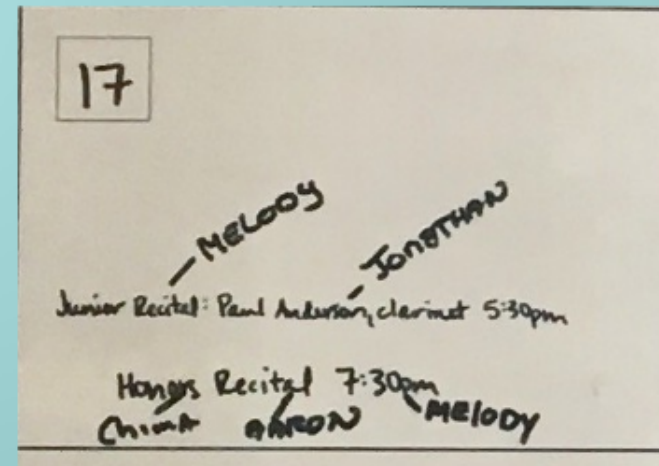 17
MELODY
JONATHAN
Junior Recital: Paul Anderson, clarinet 5:30pm
Honors Recital 7:30pm
Chima AARON MElODY